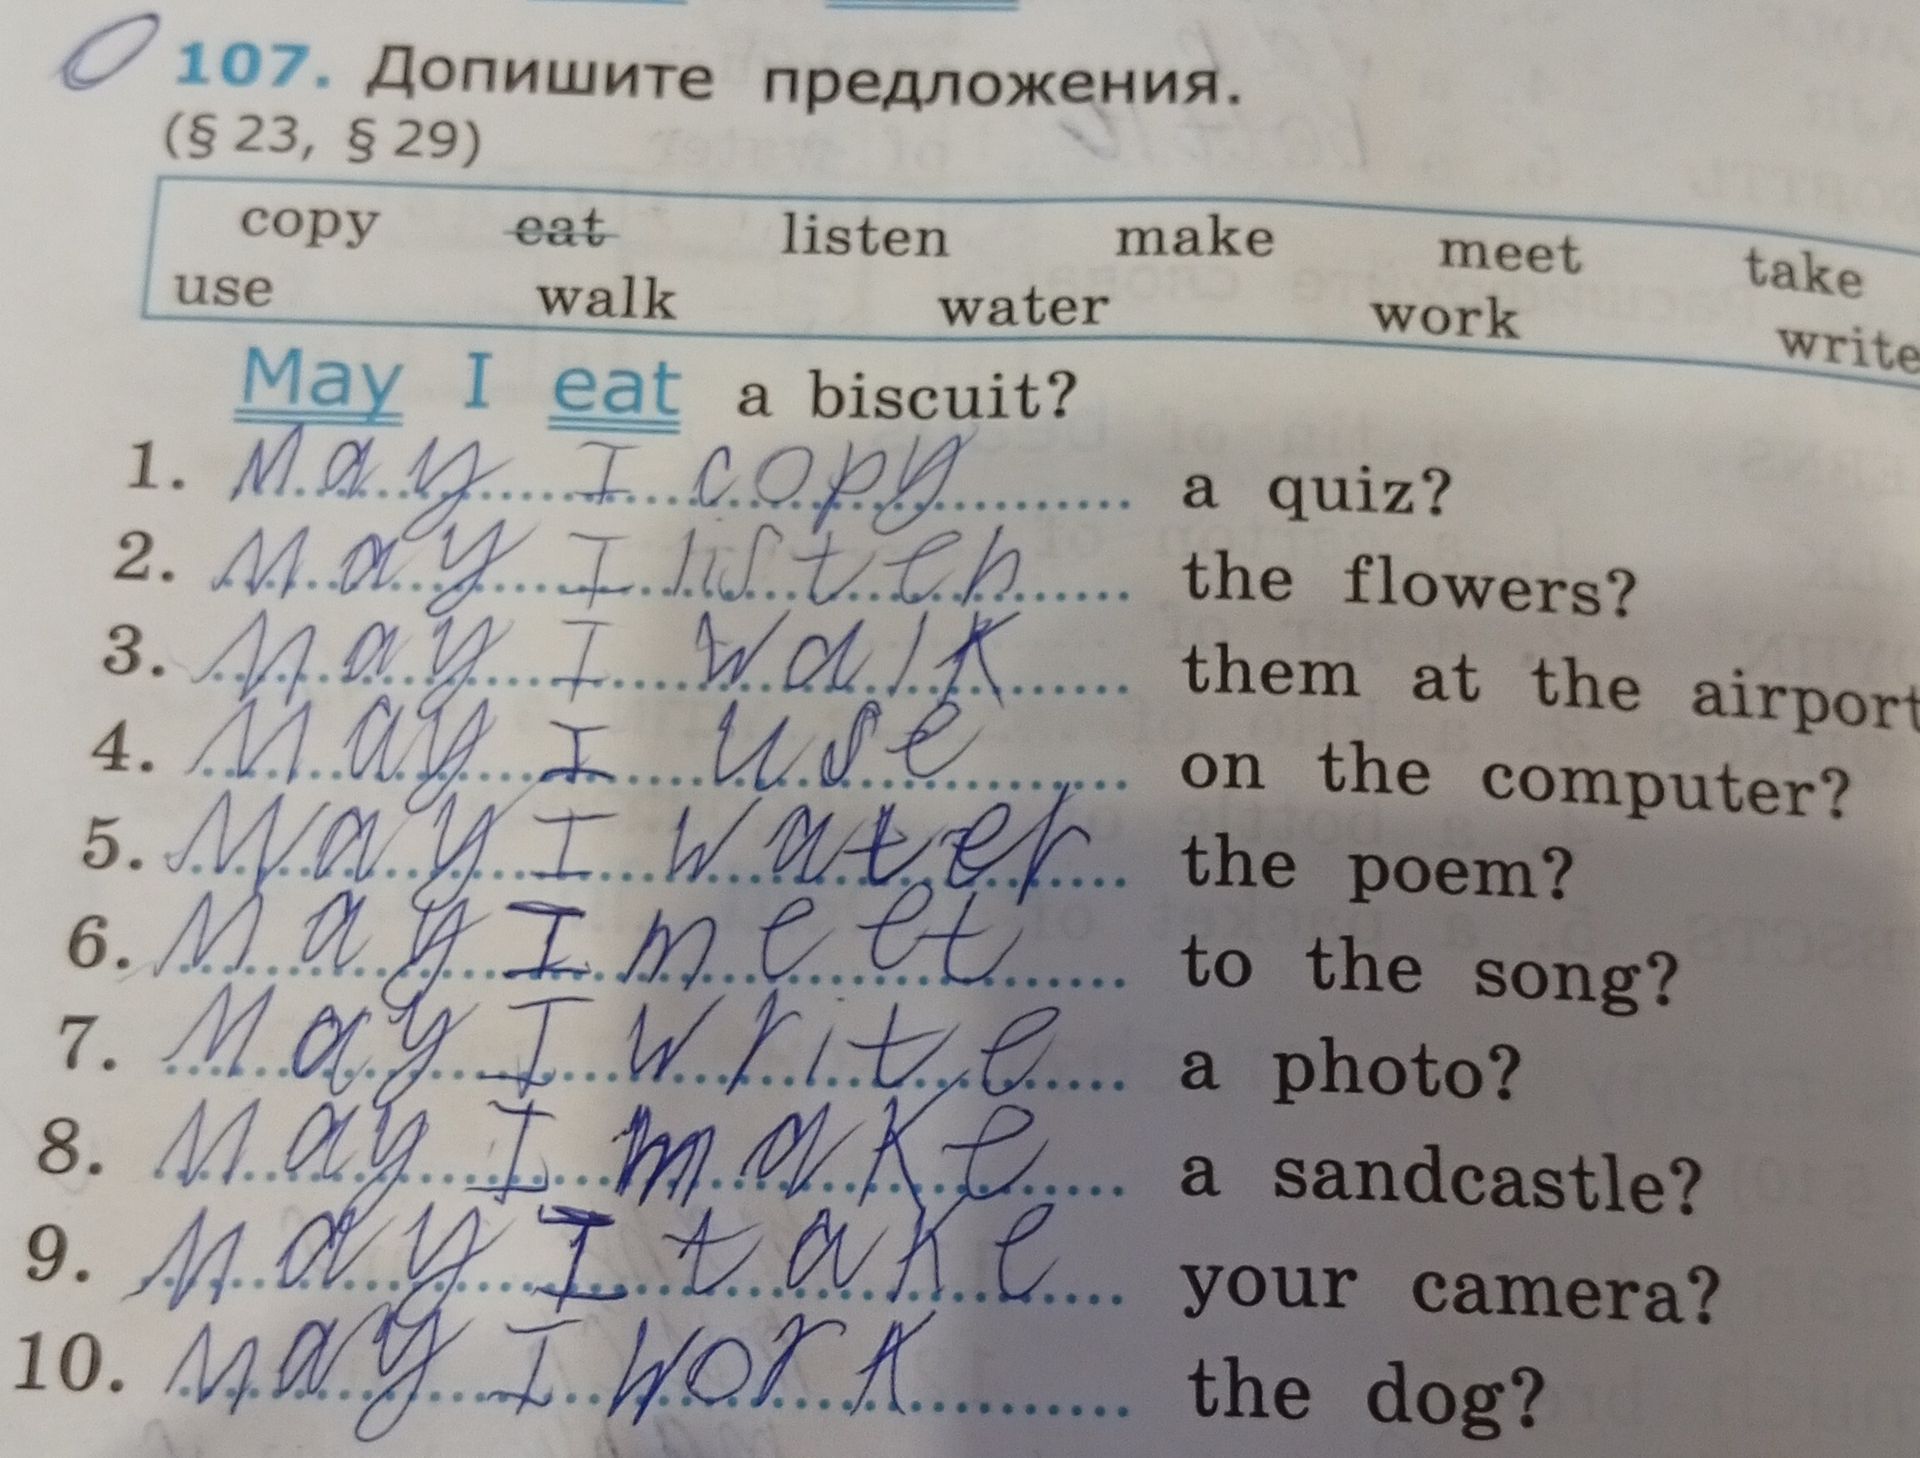 107. Допишите предложения.
(§ 23, § 29)
copy eat listen make meet take
use walk water work write
May I eat a biscuit?
1. May I copy a quiz?
2. May I listen the flowers?
3. May I walk them at the airport
4. May I use on the computer?
5. May I water the poem?
6. May I meet to the song?
7. May I write a photo?
8. May I make a sandcastle?
9. May I take your camera?
10. May I work the dog?